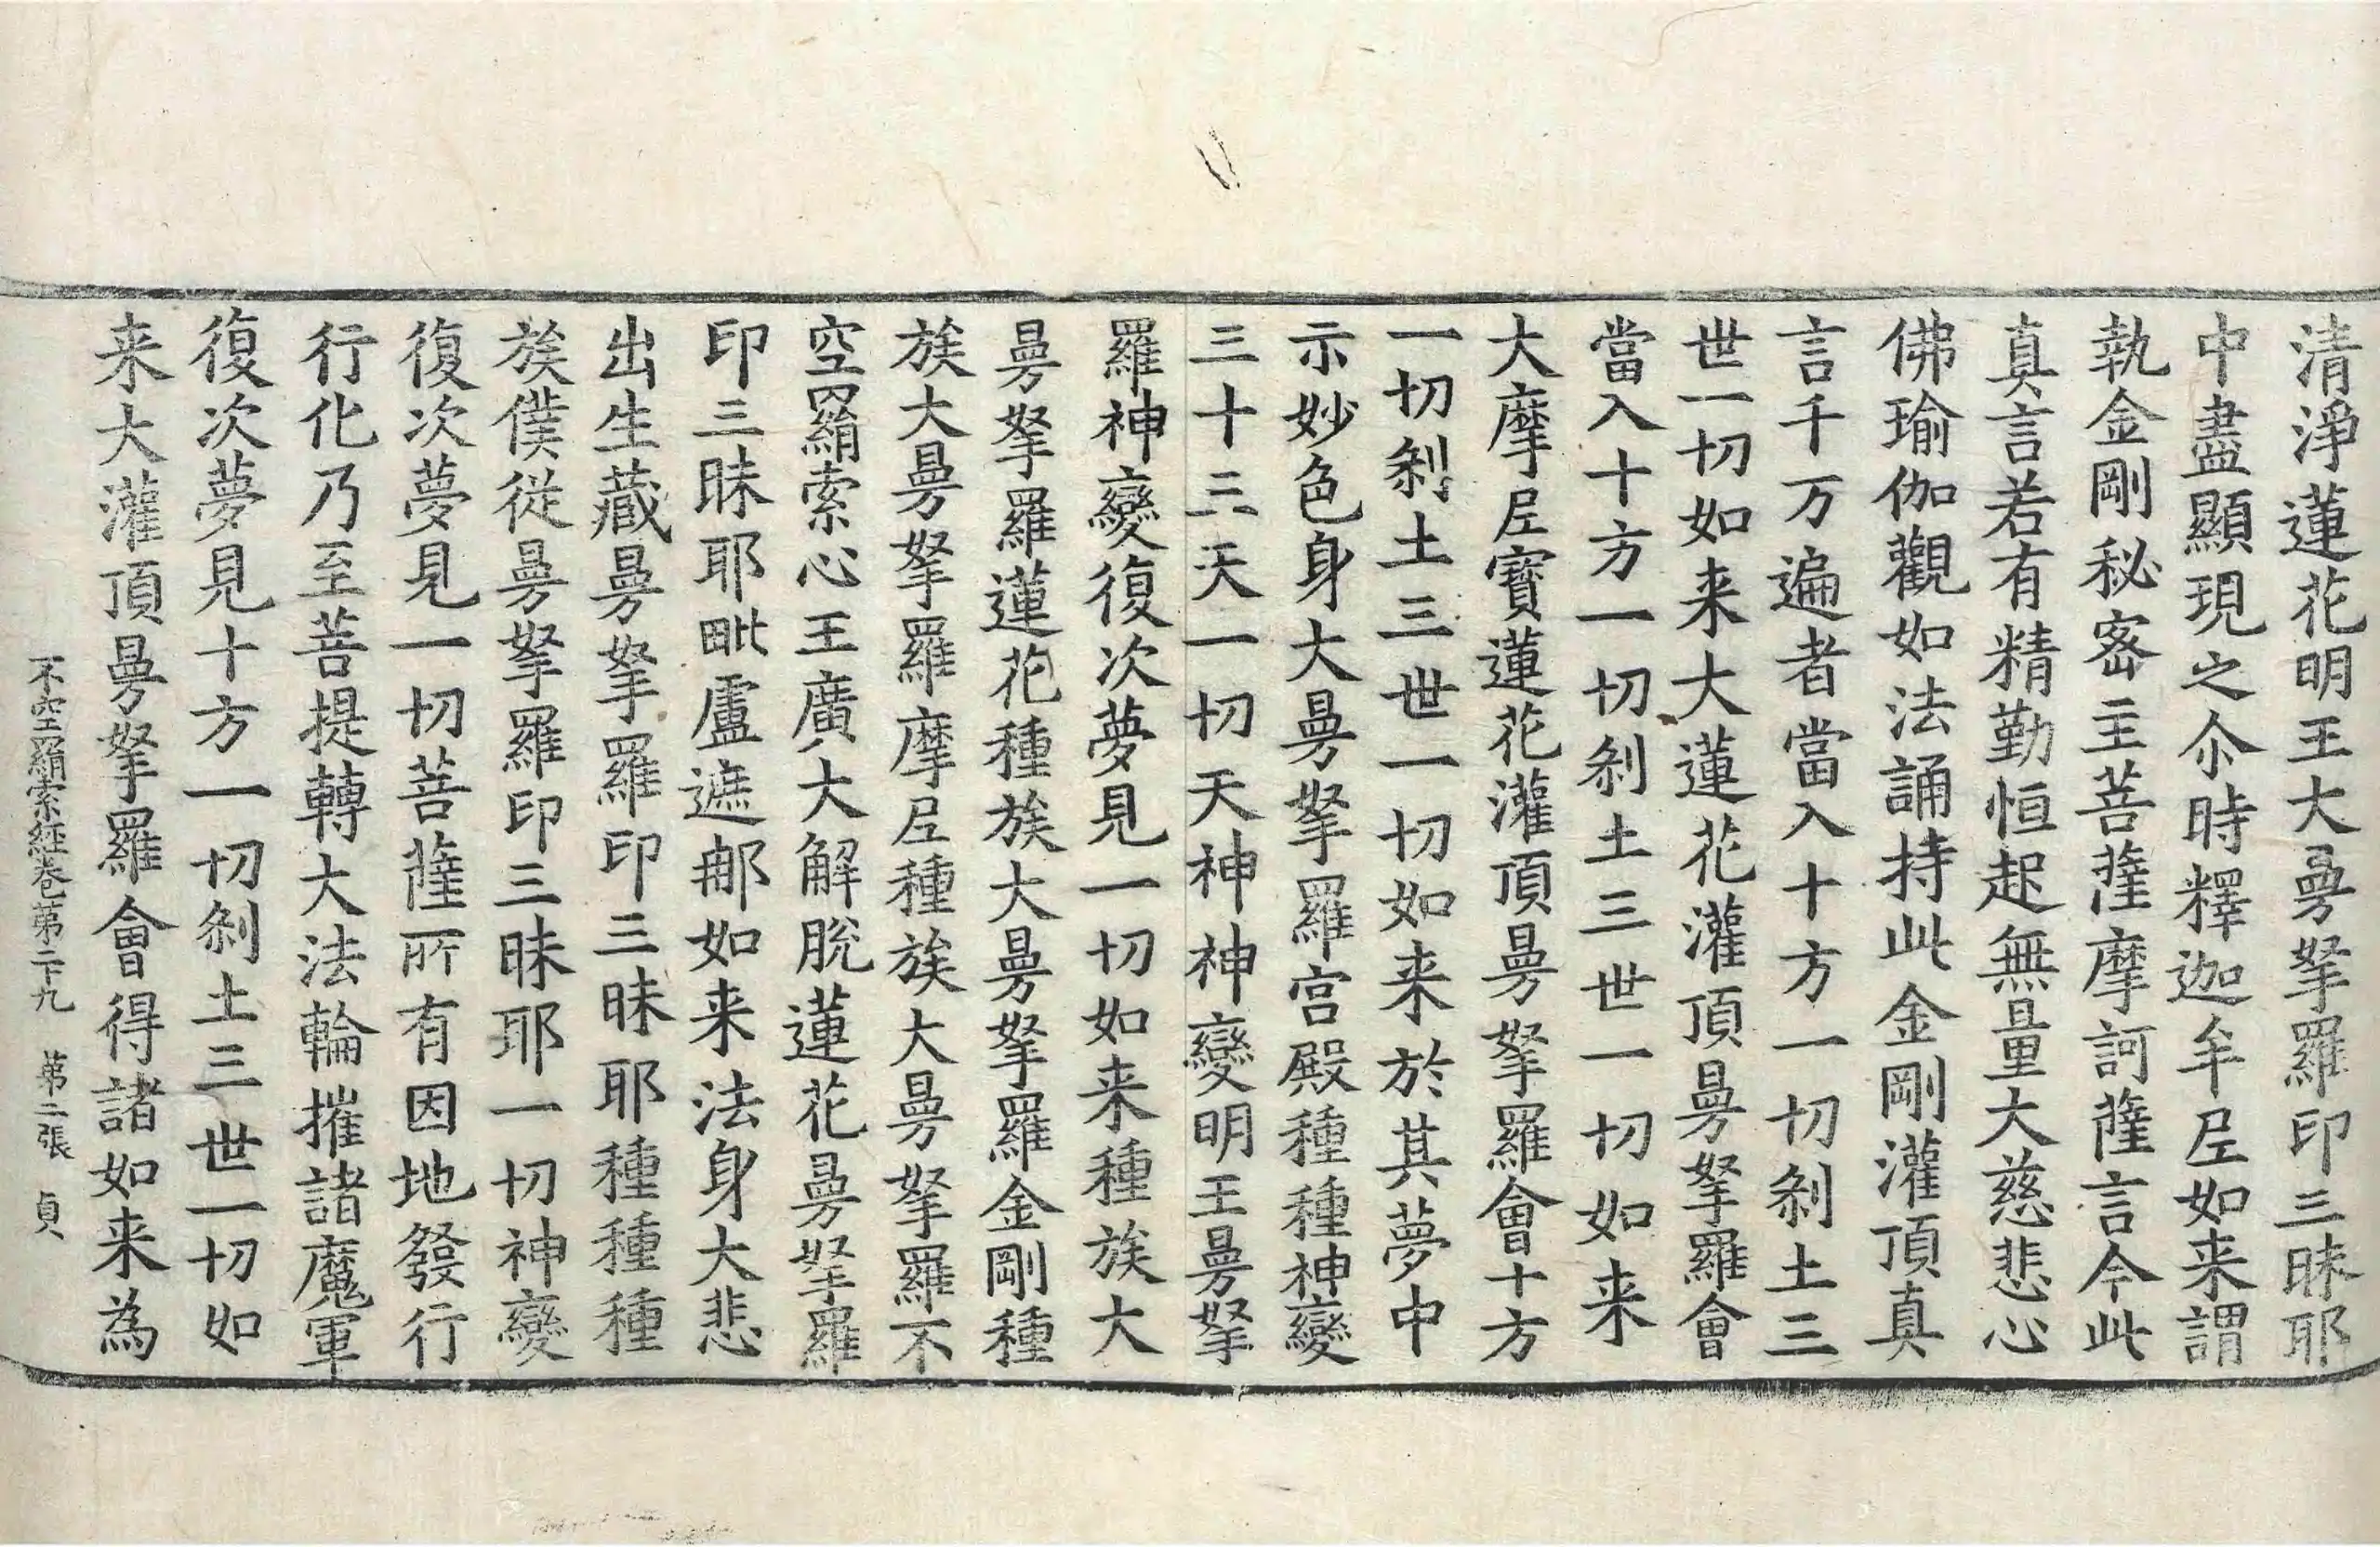 清淨蓮花明王大曼拏羅印三昧耶
中盡顯現之尒時釋迦牟𡰱如来謂
執金剛秘密主菩薩摩訶薩言今此
真言若有精勤恒起無量大慈悲心
佛瑜伽觀如法誦持此金剛灌頂真
言千万遍者當入十方一切剎土三
世一切如来大蓮花灌頂曼拏羅會
當入十方一切剎土三世一切如来
大摩𡰱寶蓮花灌頂曼拏羅會十方
一切剎土三世一切如来於其夢中
示妙色身大曼拏羅宮殿種種神變
三十三天一切天神神變明王曼拏
羅神變復次夢見一切如来種族大
曼拏羅蓮花種族大曼拏羅金剛種
族大曼拏羅摩𡰱種族大曼拏羅不
空羂索心王廣大解脫蓮花曼拏羅
印三昧耶毗盧遮那如来法身大悲
出生藏曼拏羅印三昧耶種種種
族僕從曼拏羅印三昧耶一切神變
復次夢見一切菩薩所有因地發行
行化乃至菩提轉大法輪摧諸魔軍
復次夢見十方一切剎土三世一切如
来大灌頂曼拏羅會得諸如来為
不空羂索經卷第二十九 第二張 貞